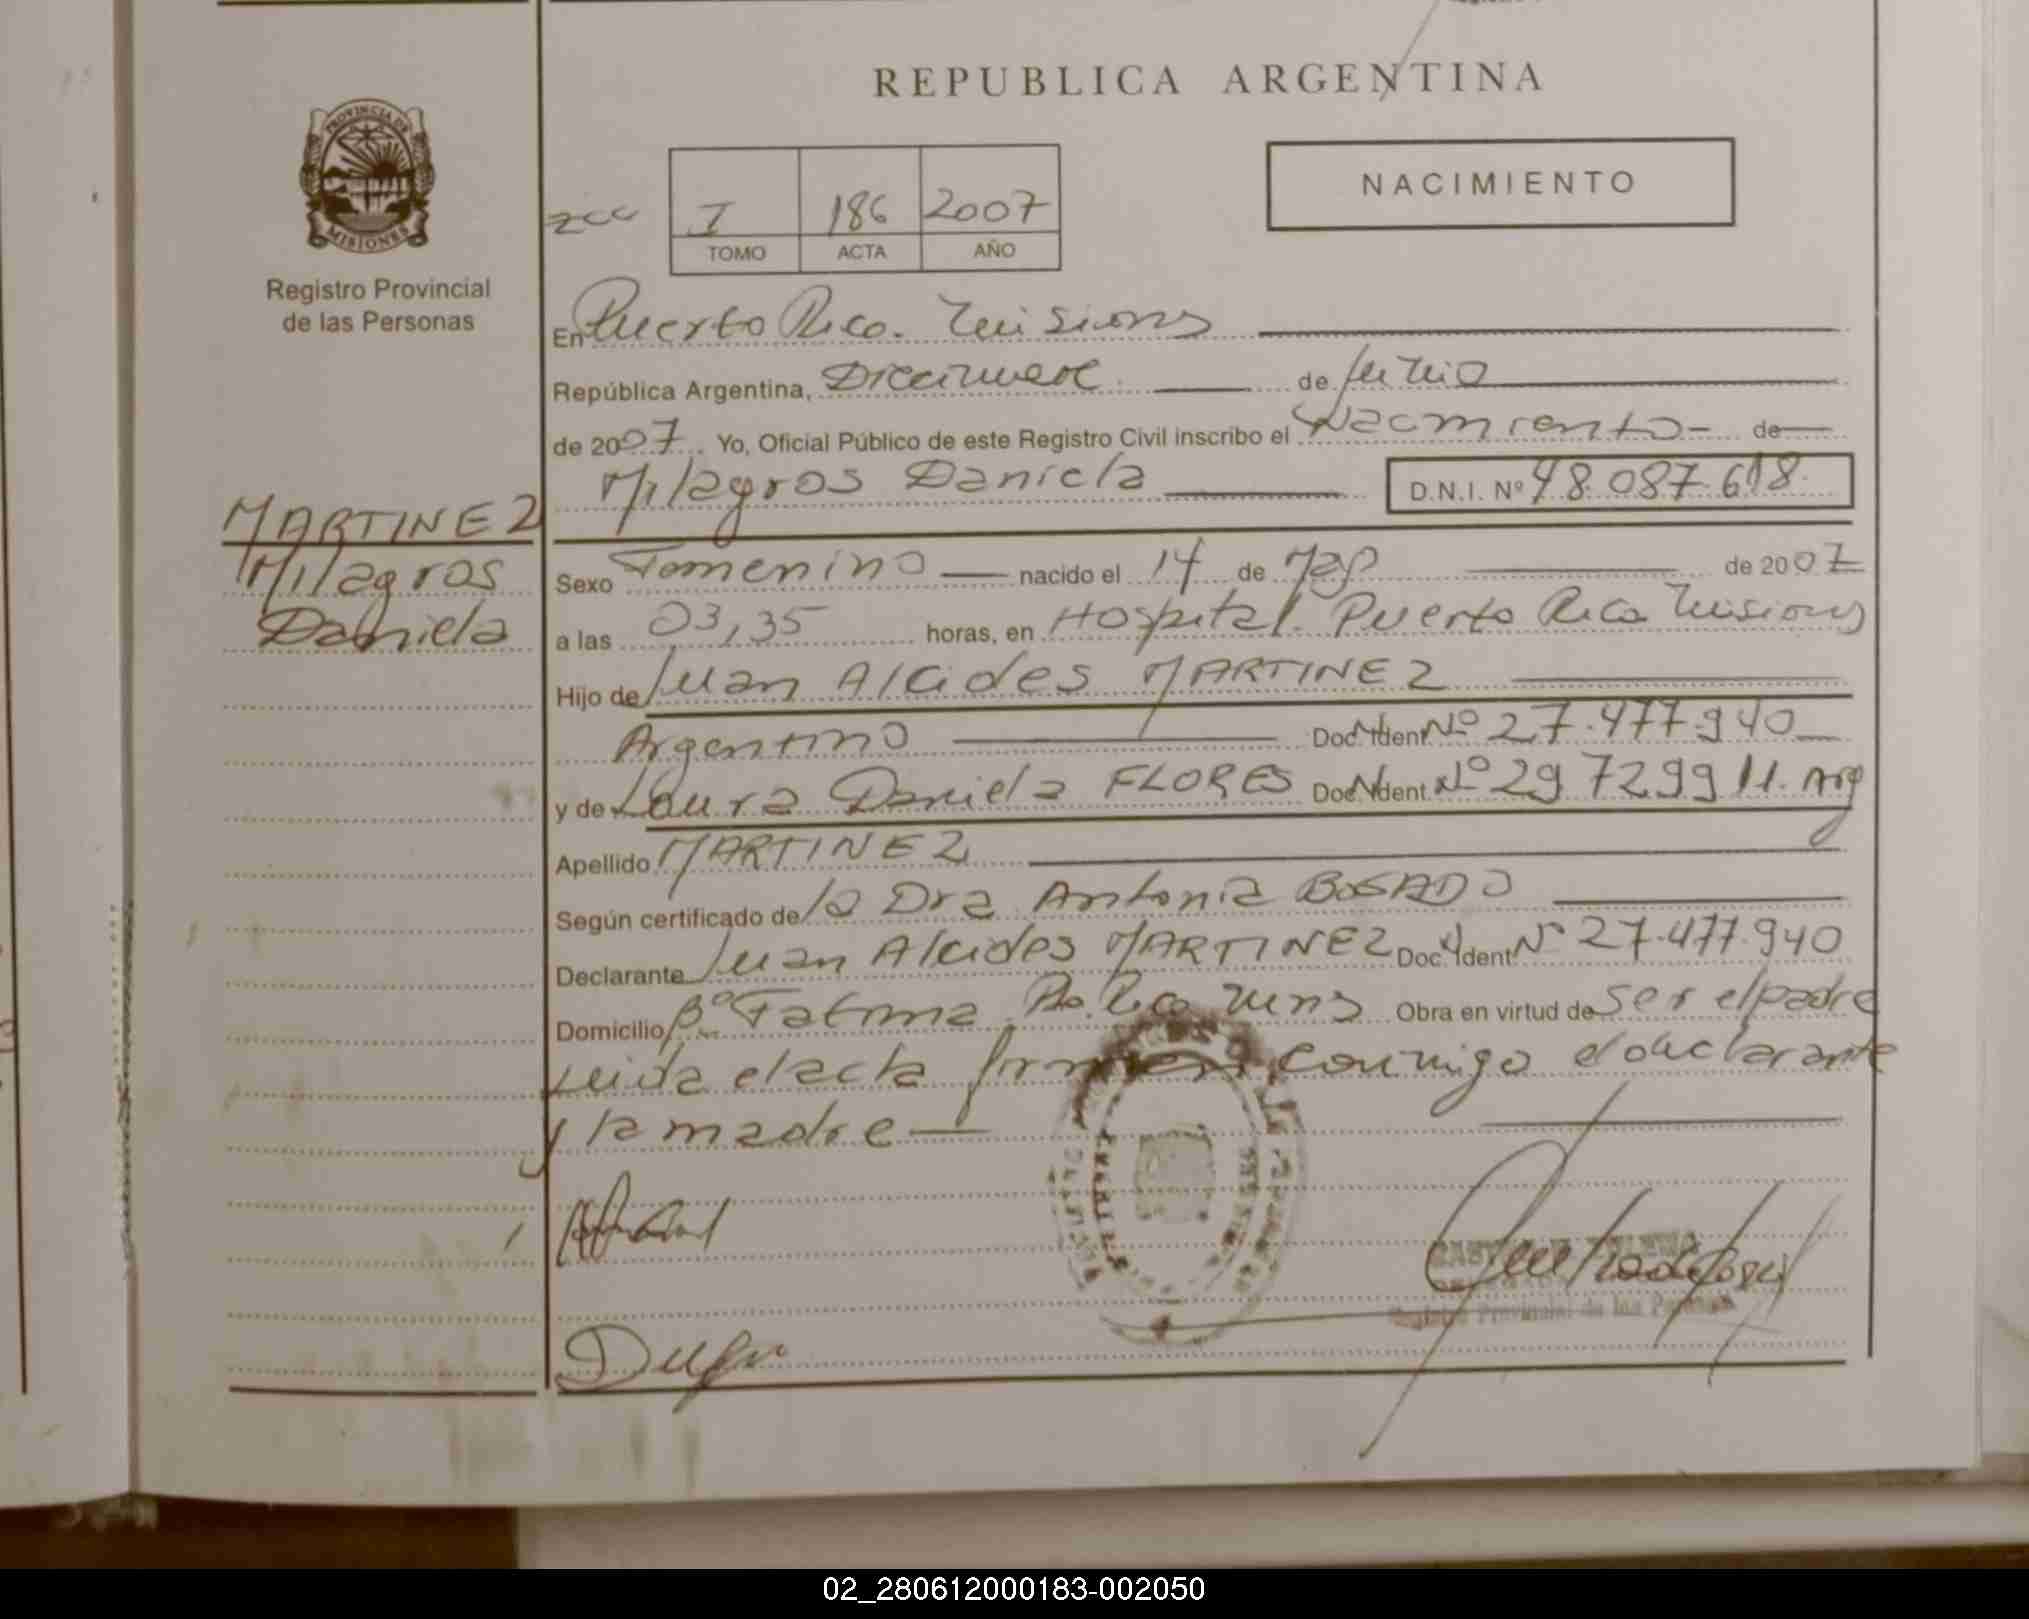 REPUBLICA ARGENTINA
PROVINCIA DE
MISIONES
Registro Provincial
de las Personas
NACIMIENTO
I 186 2007
TOMO ACTA AÑO
En Puerto Rico. Misiones
República Argentina, de Junio
de 2007. Yo, Oficial Público de este Registro Civil inscribo el Nacimiento de
Milagros Daniela D.N.I. Nº 48.087.618
MARTINEZ
Milagros
Daniela
Sexo Femenino nacido el 14 de Mayo de 2007
a las 03,35 horas, en Hospital Puerto Rico Misiones
Hijo de Juan Alcides MARTINEZ
Argentino Doc. Ident. Nº 27.477.940
y de Laura Daniela FLORES Doc. Ident. Nº 29729911. Arg
Apellido MARTINEZ
Según certificado de la Dra Antonia BOSADO
Declarante Juan Alcides MARTINEZ Doc. Ident. Nº 27.477.940
Domicilio Bº Fatima Pto. Rico Mns Obra en virtud de ser el padre
Leida el acta firman conmigo el declarante
y la madre
Registro Provincial de las Personas
02_280612000183-002050